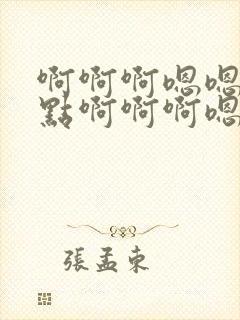 啊啊啊嗯嗯
點啊啊啊嗯
張孟東